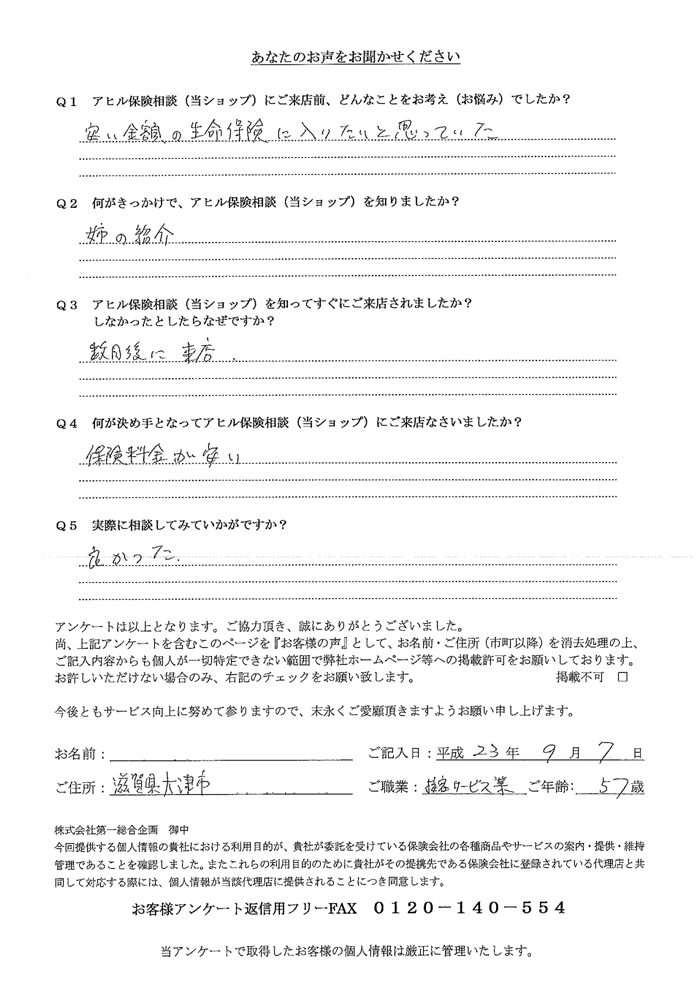 あなたのお声をお聞かせください
Q1 アヒル保険相談(当ショップ)にご来店前、どんなことをお考え(お悩み)でしたか?
安い金額の生命保険に入りたいと思っていた
Q2 何がきっかけで、アヒル保険相談(当ショップ)を知りましたか?
姉の紹介
Q3 アヒル保険相談(当ショップ)を知ってすぐにご来店されましたか?
しなかったとしたらなぜですか?
数月後に来店.
Q4 何が決め手となってアヒル保険相談(当ショップ)にご来店なさいましたか?
保険料金が安い
Q5 実際に相談してみていかがですか?
良かった.
アンケートは以上となります。ご協力頂き、誠にありがとうございました。
尚、上記アンケートを含むこのページを『お客様の声』として、お名前・ご住所(市町以降)を消去処理の上、
ご記入内容からも個人が一切特定できない範囲で弊社ホームページ等への掲載許可をお願いしております。
お許しいただけない場合のみ、右記のチェックをお願い致します。 掲載不可 □
今後ともサービス向上に努めて参りますので、末永くご愛願頂きますようお願い申し上げます。
お名前: ご記入日:平成 23 年 9 月 7 日
ご住所: 滋賀県大津市 ご職業: 接客サービス業 ご年齢: 57 歳
株式会社第一総合企画 御中
今回提供する個人情報の貴社における利用目的が、貴社が委託を受けている保険会社の各種商品やサービスの案内・提供・維持
管理であることを確認しました。またこれらの利用目的のために貴社がその提携先である保険会社に登録されている代理店と共
同して対応する際には、個人情報が当該代理店に提供されることにつき同意します。
お客様アンケート返信用フリーFAX 0120-140-554
当アンケートで取得したお客様の個人情報は厳正に管理いたします。